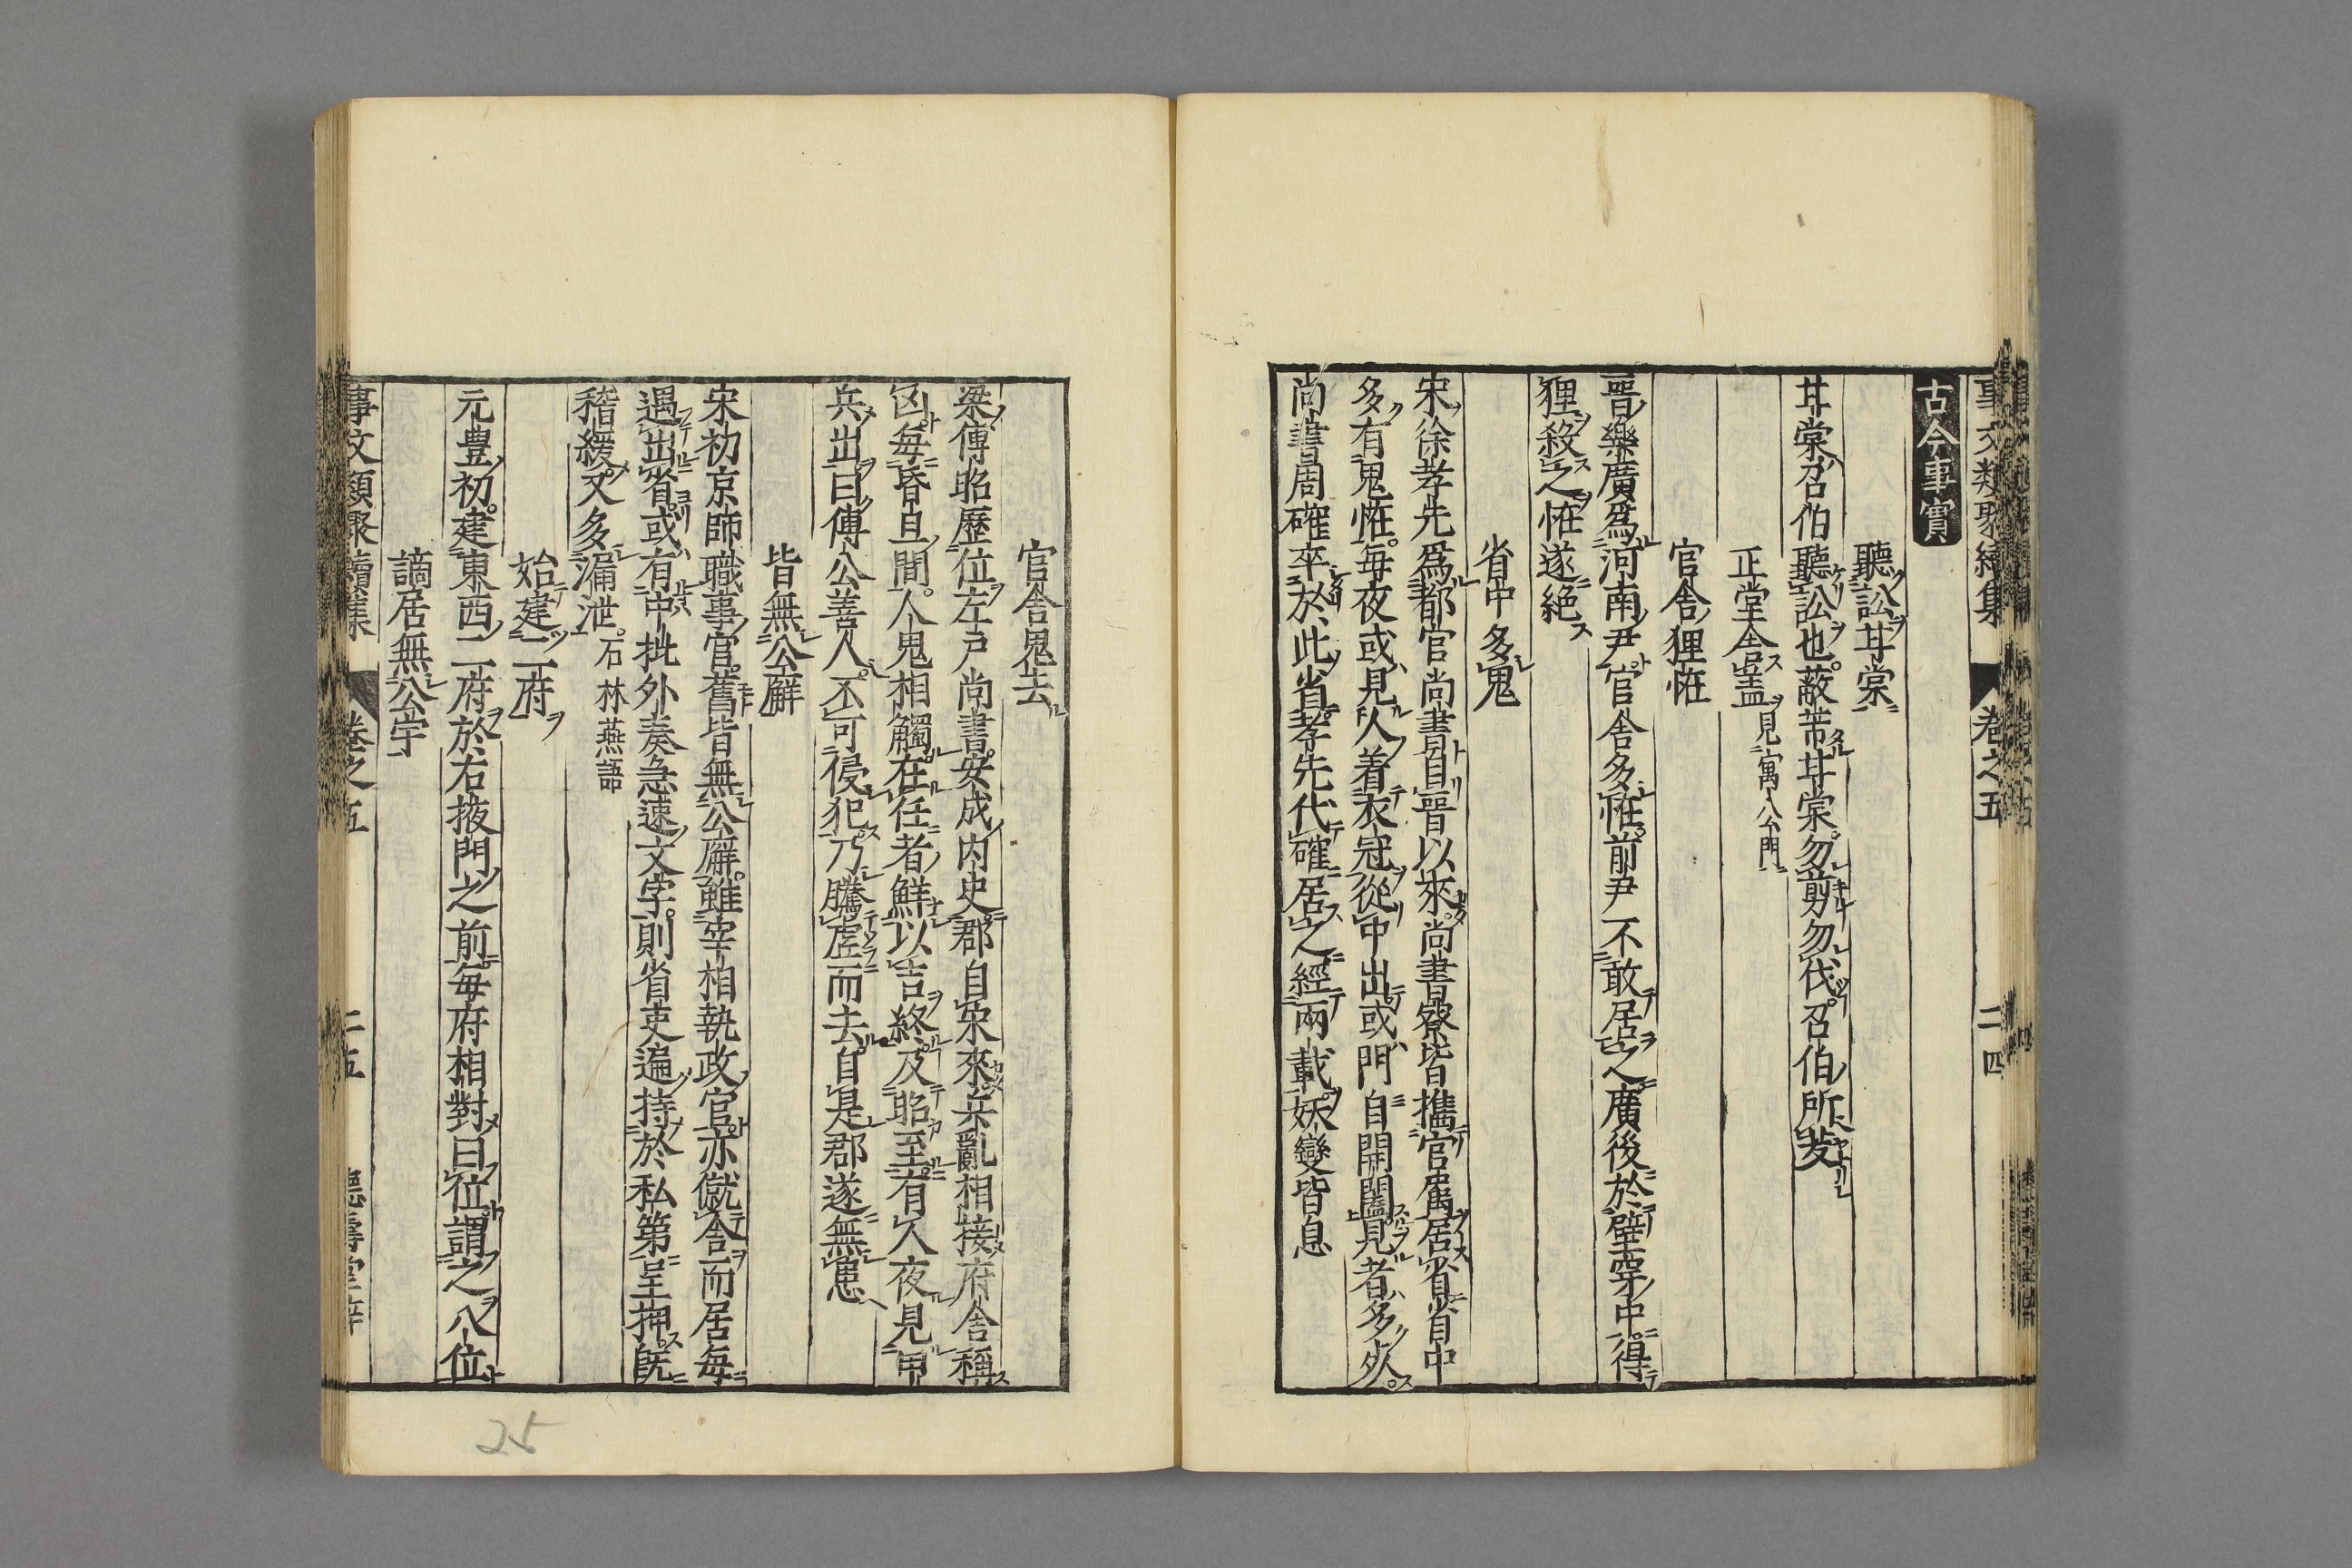 事文類聚續集 卷之五 二四
古今事實
聽訟甘棠
甘棠召伯聽訟也蔽芾甘棠勿剪勿伐召伯所茇
正堂舍蓋見寓公門
官舍狸怪
晉樂廣爲河南尹官舍多怪前尹不敢居之廣後於壁穿中得
狸殺之怪遂絕
省中多鬼
宋徐孝先爲都官尚書自晉以來尚書寮皆攜官屬居省省中
多有鬼怪每夜或見人着衣冠從中出或門自開闔見者多死
尚書周確卒於此省孝先代確居之經兩載妖變皆息
官舍鬼去
梁傅昭歷位左戶尚書安成內史郡自宋來兵亂相接府舍稱
凶每昏旦間人鬼相觸在任者鮮以吉終及昭至有人夜見甲
兵出曰傅公善人不可侵犯乃騰虛而去自是郡遂無患
皆無公廨
宋初京師職事官舊皆無公廨雖宰相執政官亦僦舍而居每
遇出省或有中批外奏急速文字則省吏遍持於私第呈押旣
稽緩又多漏泄石林燕語
始建二府
元豊初建東西二府於右掖門之前每府相對曰位謂之八位
謫居無公宇
事文類聚續集 卷之五 二五 德壽堂梓
25